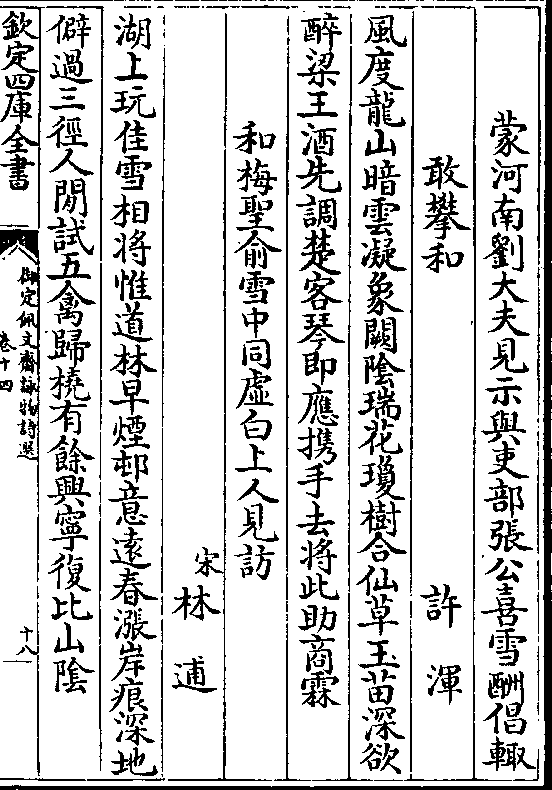 蒙河南劉大夫見示與吏部張公喜雪酬倡輙
敢攀和　許渾
風度龍山暗雲凝象闕陰瑞花瓊樹合仙草玉苗深欲
醉梁王酒先調楚客琴即應携手去將此助商霖
和梅聖俞雪中同虛白上人見訪
宋林逋
湖上玩佳雪相將惟道林早煙邨意遠春漲岸痕深地
僻過三徑人閒試五禽歸橈有餘興寧復比山陰
欽定四庫全書
御定佩文齋詠物詩選
卷十四
十八